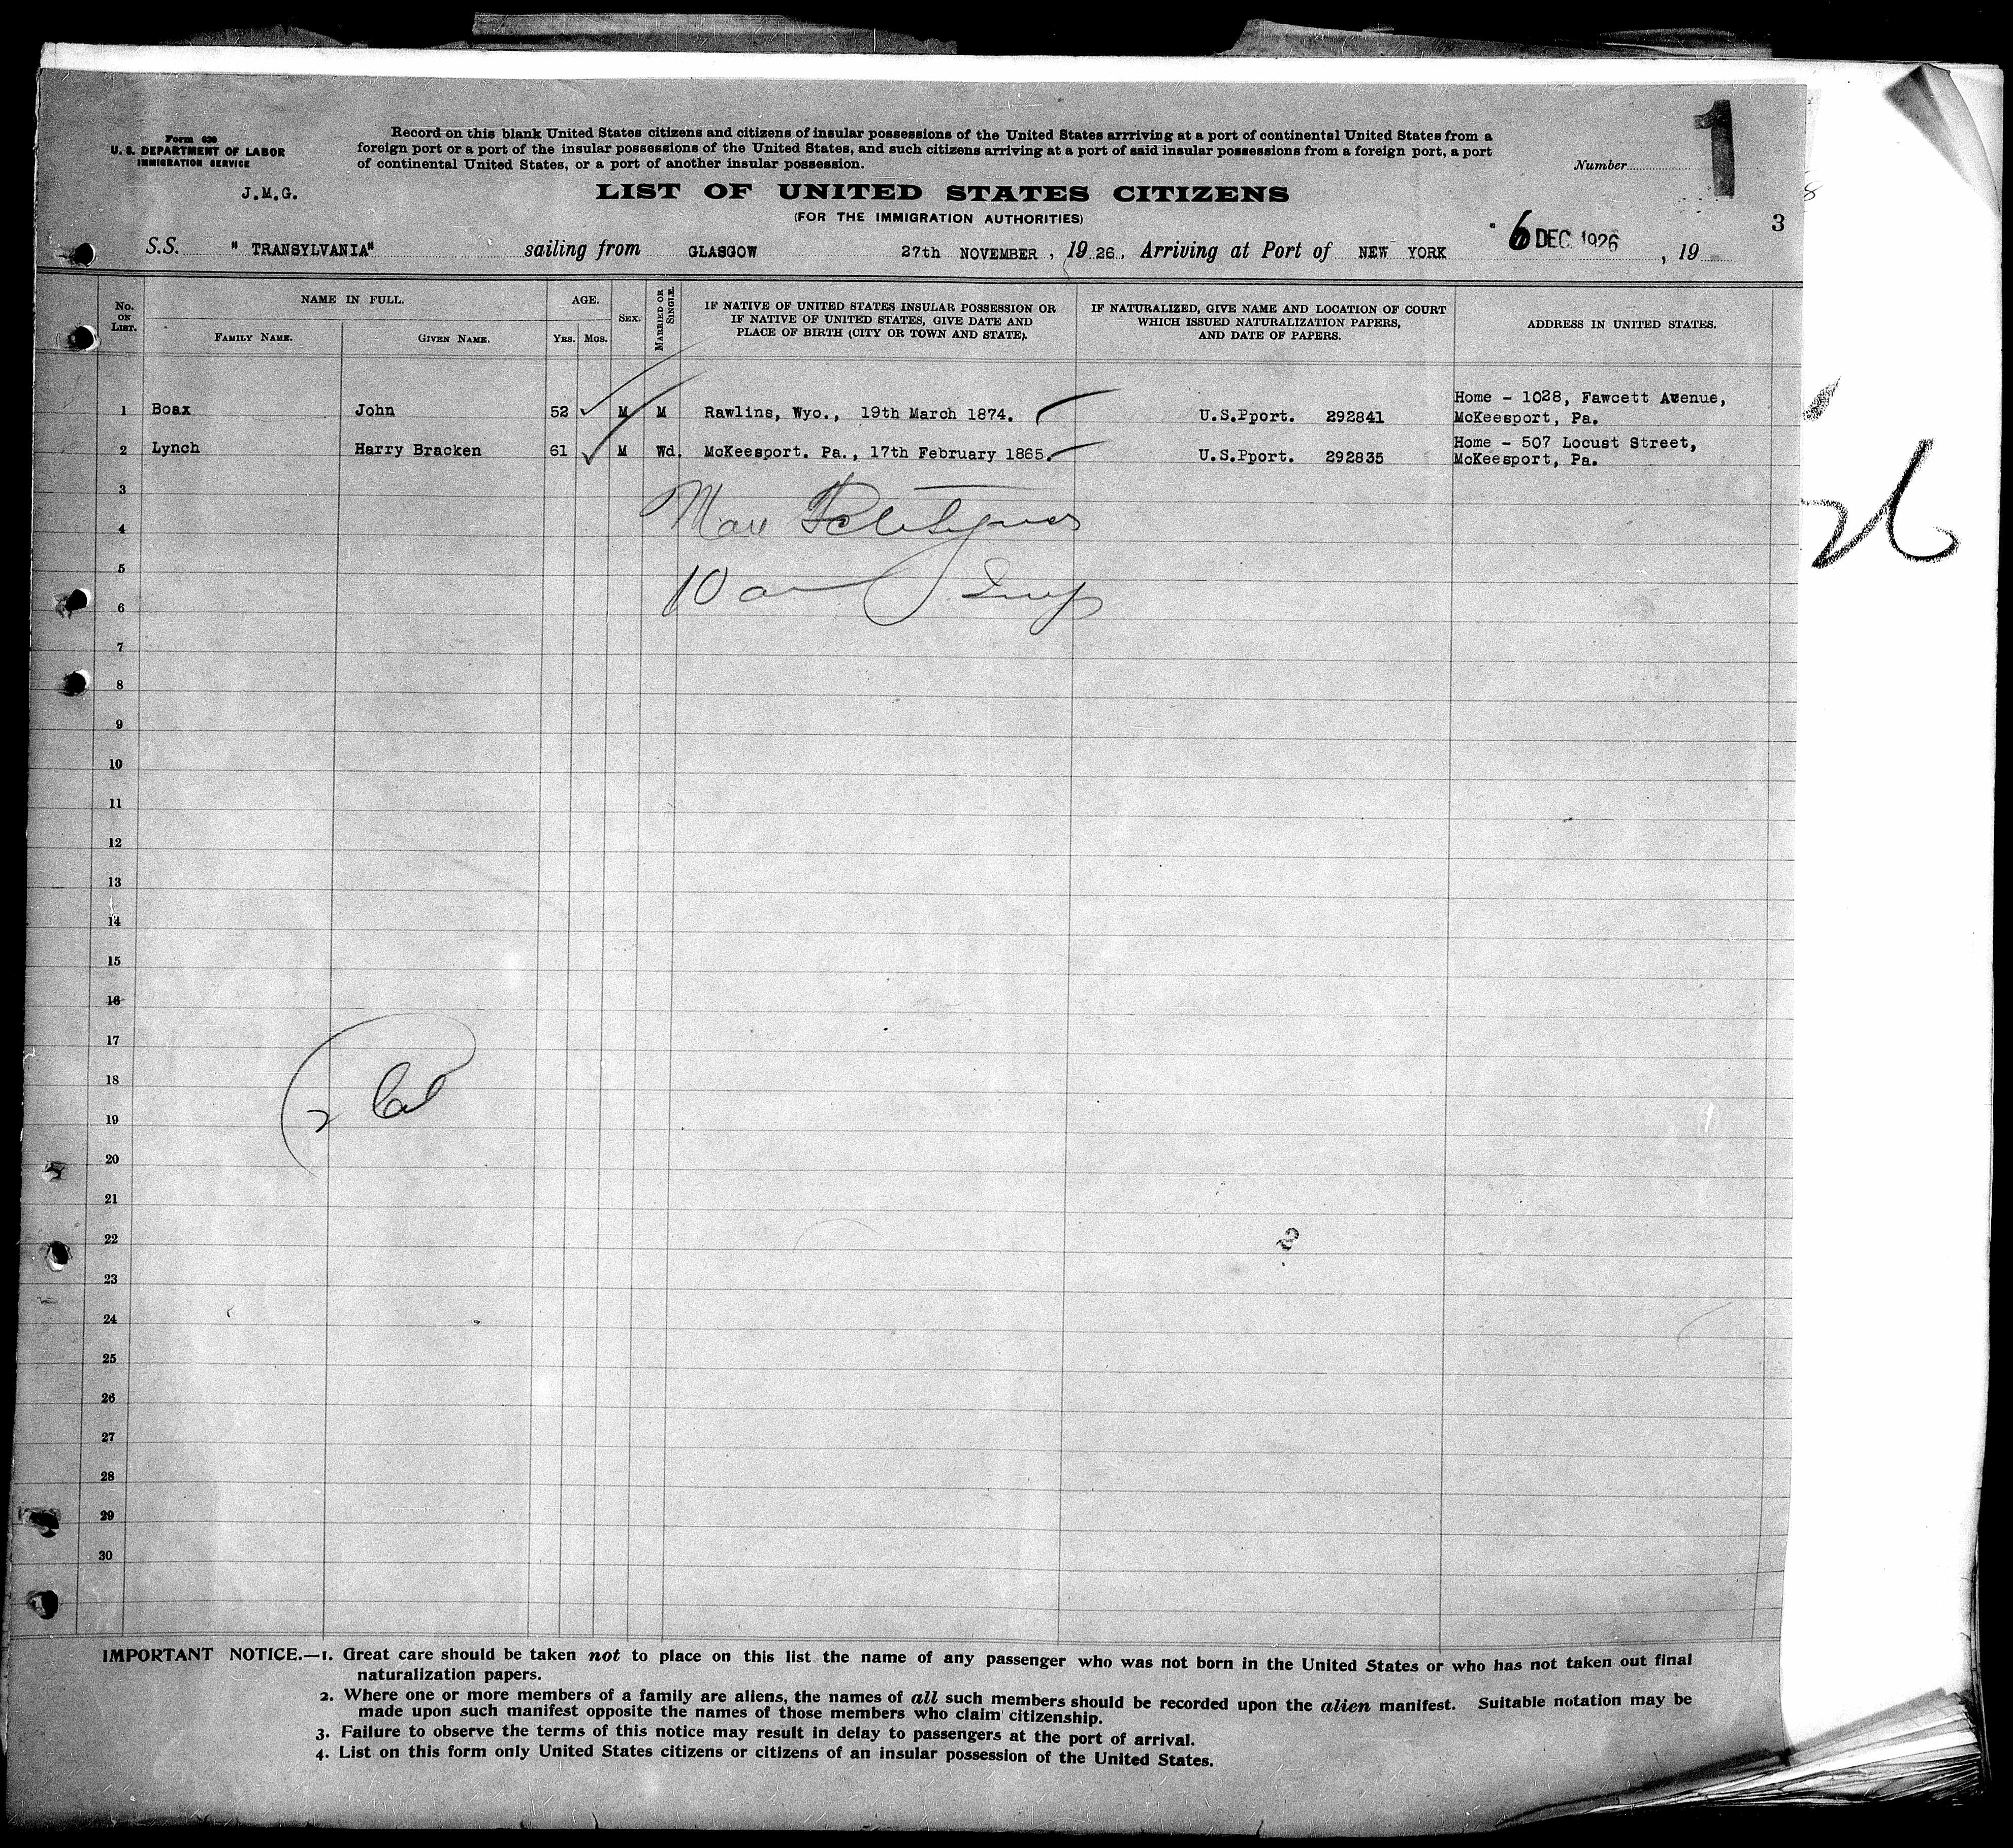 Form 630
U. S. DEPARTMENT OF LABOR
IMMIGRATION SERVICE
J.M.G.
Record on this blank United States citizens and citizens of insular possessions of the United States arrriving at a port of continental United States from a
foreign port or a port of the insular possessions of the United States, and such citizens arriving at a port of said insular possessions from a foreign port, a port
of continental United States, or a port of another insular possession.
Number
1
LIST OF UNITED STATES CITIZENS
(FOR THE IMMIGRATION AUTHORITIES)
3
S.S. " TRANSYLVANIA" sailing from GLASGOW 27th NOVEMBER , 19 26. Arriving at Port of NEW YORK 6 DEC 1926 , 19
No. ON LIST.
NAME IN FULL.
FAMILY NAME. GIVEN NAME.
AGE.
YRS. MOS.
SEX.
MARRIED OR SINGLE.
IF NATIVE OF UNITED STATES INSULAR POSSESSION OR
IF NATIVE OF UNITED STATES, GIVE DATE AND
PLACE OF BIRTH (CITY OR TOWN AND STATE).
IF NATURALIZED, GIVE NAME AND LOCATION OF COURT
WHICH ISSUED NATURALIZATION PAPERS,
AND DATE OF PAPERS.
ADDRESS IN UNITED STATES.
1 Boax John 52 M M Rawlins, Wyo., 19th March 1874. U.S.Pport. 292841 Home - 1028, Fawcett Avenue,
McKeesport, Pa.
2 Lynch Harry Bracken 61 M Wd. McKeesport. Pa., 17th February 1865. U.S.Pport. 292835 Home - 507 Locust Street,
McKeesport, Pa.
3
4
5
10 am
6
7
8
9
10
11
12
13
14
15
16
17
18
19
20
21
22
23
24
25
26
27
28
29
30
26
IMPORTANT NOTICE.—1. Great care should be taken not to place on this list the name of any passenger who was not born in the United States or who has not taken out final
naturalization papers.
2. Where one or more members of a family are aliens, the names of all such members should be recorded upon the alien manifest. Suitable notation may be
made upon such manifest opposite the names of those members who claim citizenship.
3. Failure to observe the terms of this notice may result in delay to passengers at the port of arrival.
4. List on this form only United States citizens or citizens of an insular possession of the United States.